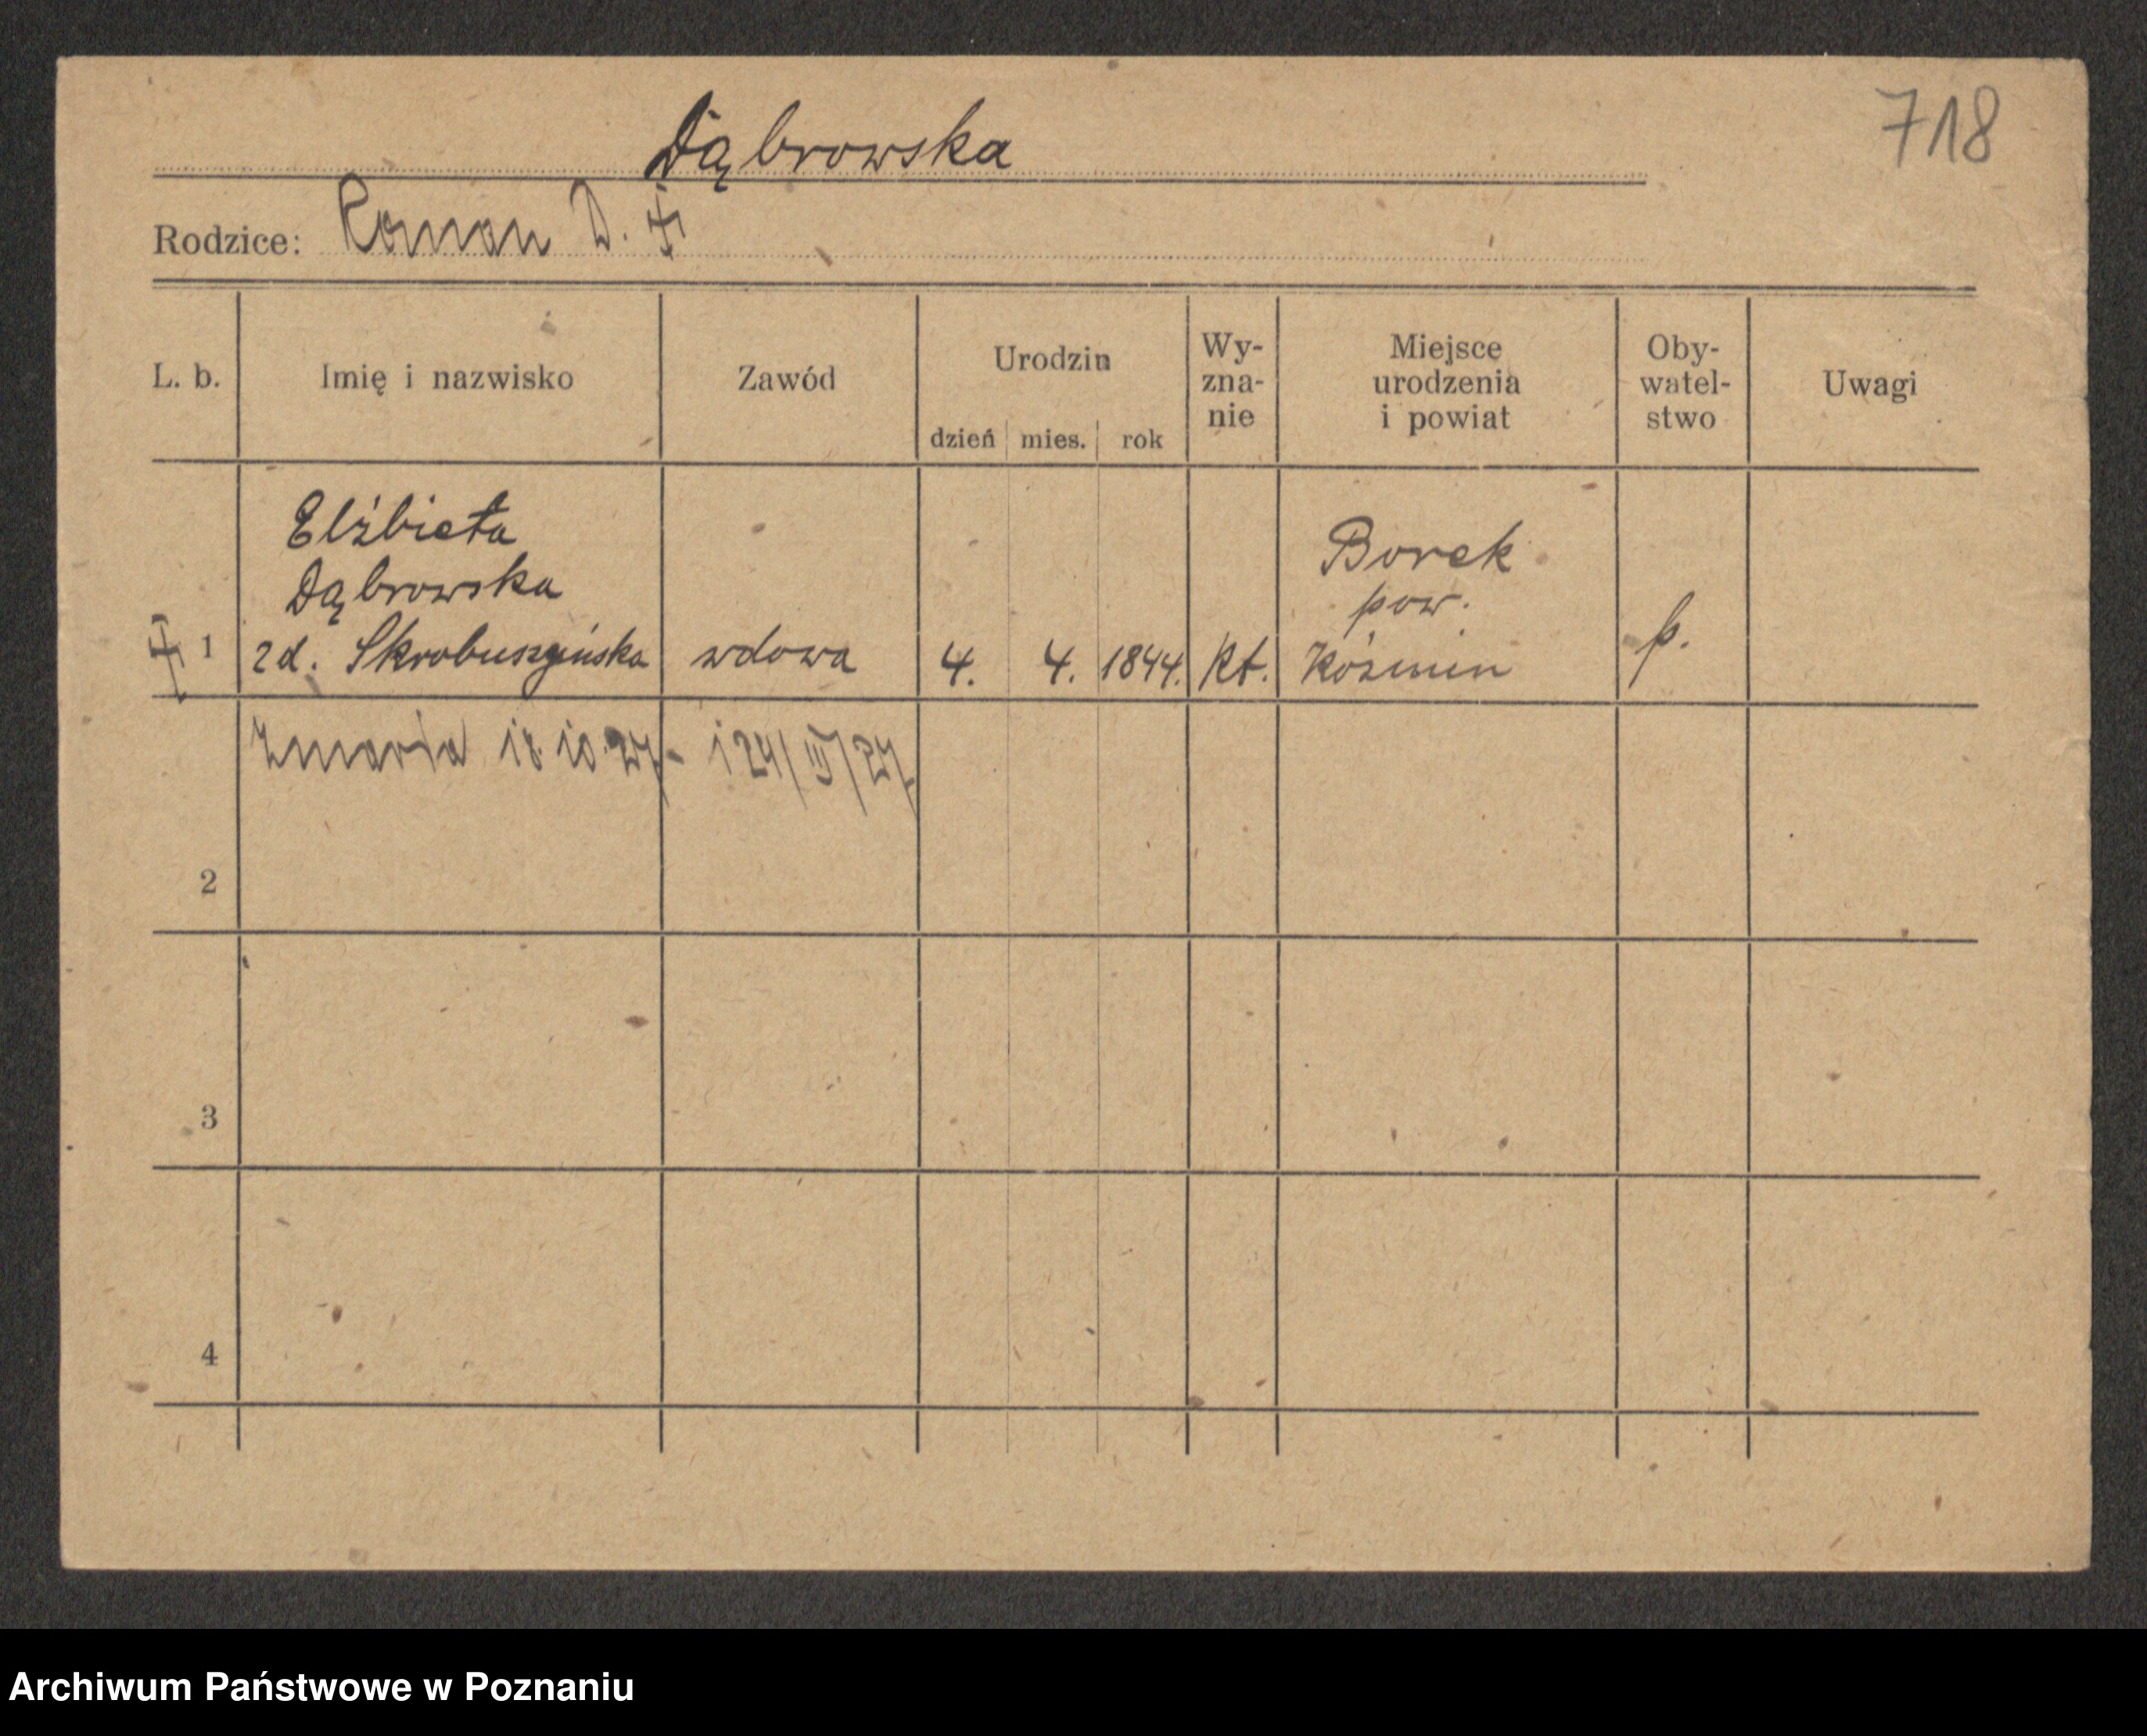 Dąbrowska
718
Rodzice: Roman D.
L. b.
Imię i nazwisko
Zawód
Urodzin
dzień mies. rok
Wy-
zna-
nie
Miejsce
urodzenia
i powiat
Oby-
watel-
stwo
Uwagi
Elżbieta
Dąbrowska
1 zd. wdowa 4. 4. 1844. kt.
Borek
pow.
Kóźmin
p.
Zmarła 18.10.27-
2
3
4
Archiwum Państwowe w Poznaniu